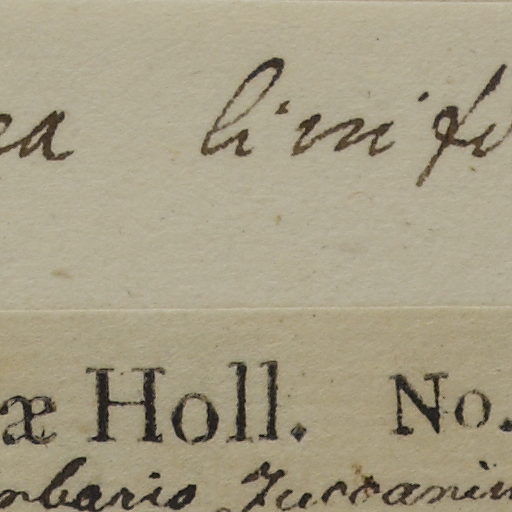 ea linifo
æ Holl. No.
nbaris Tuccanin